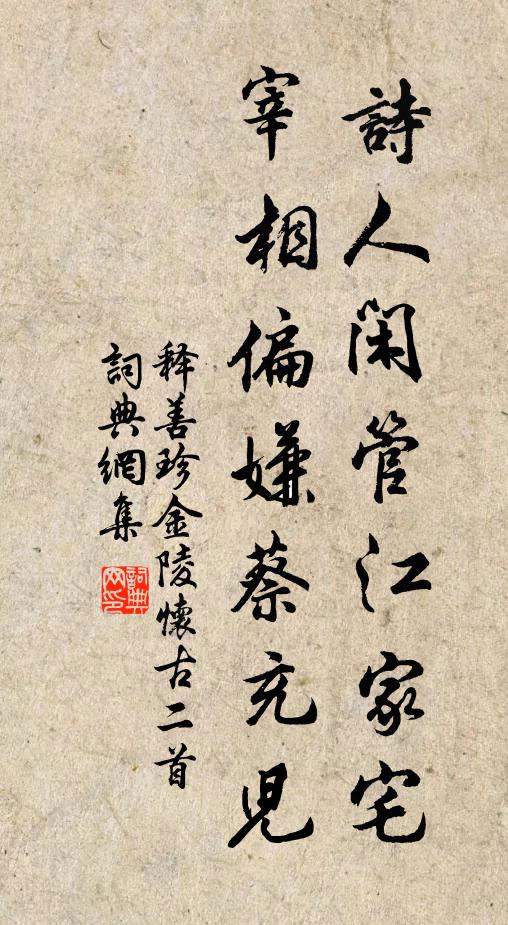 詩人閑管江家宅
宰相偏嫌蔡充兒
释善珍金陵懷古二首
詞典網集
詞典網印